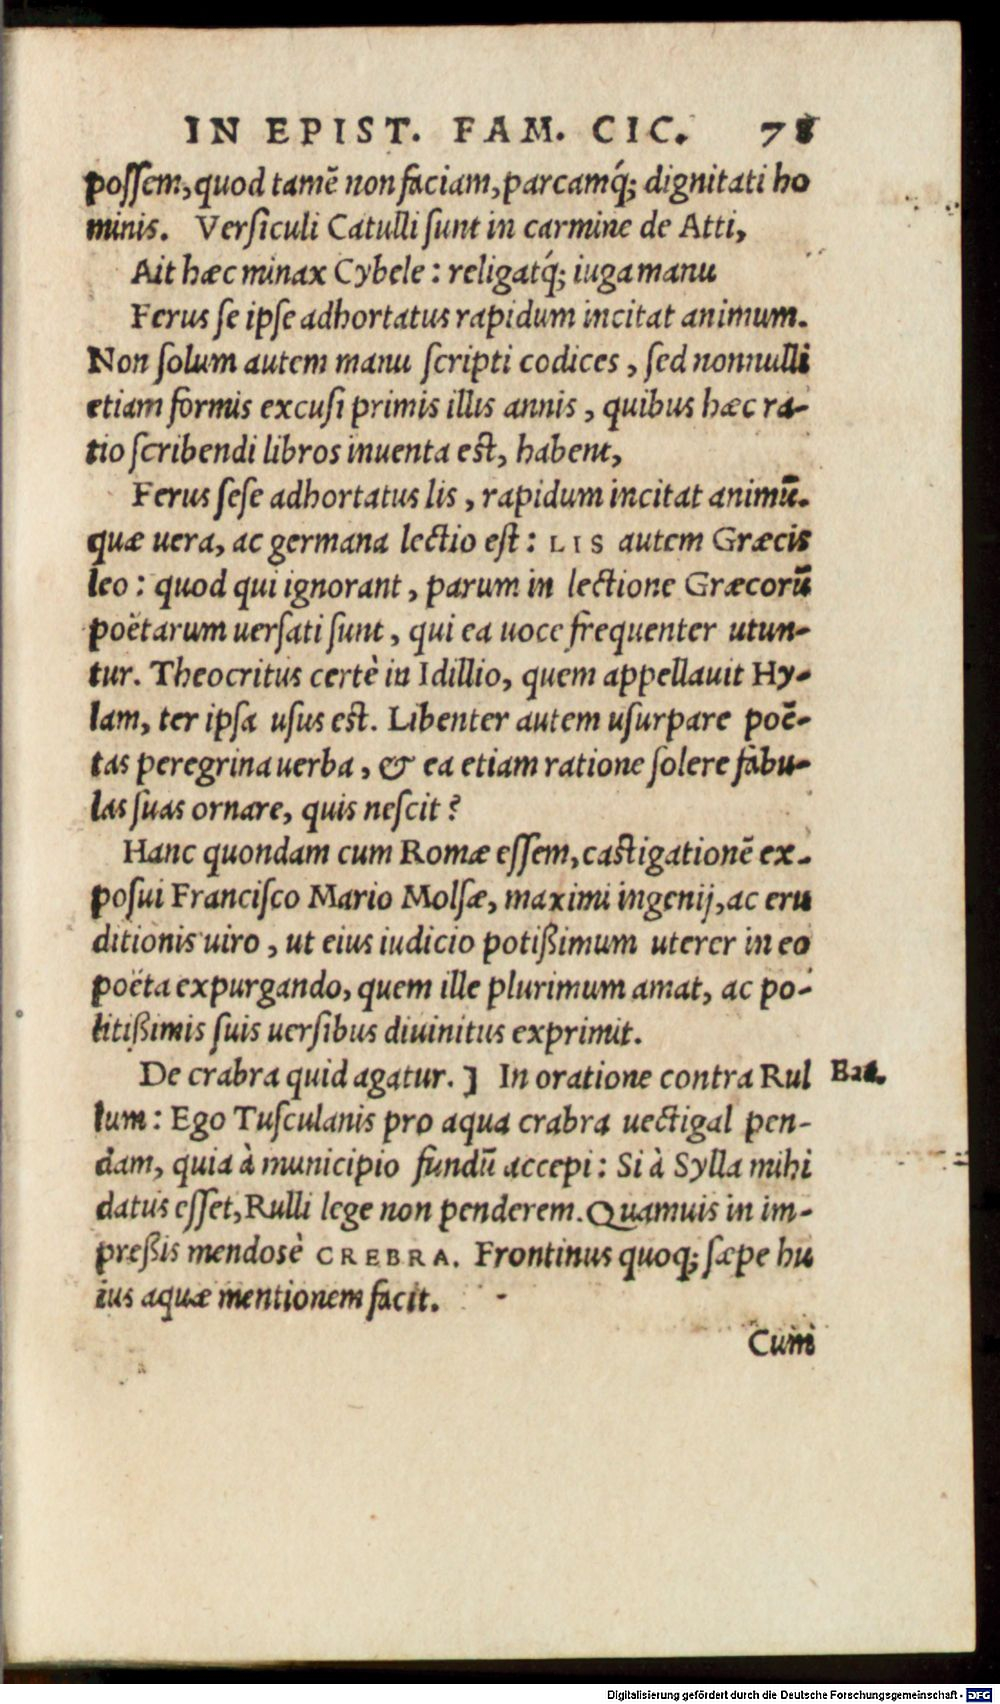 IN EPIST. FAM. CIC. 78
possem, quod tamē non faciam, parcamq́; dignitati ho
minis. Versiculi Catulli sunt in carmine de Atti,
Ait hæc minax Cybele: religatq́; iuga manu
Ferus se ipse adhortatus rapidum incitat animum.
Non solum autem manu scripti codices, sed nonnulli
etiam formis excusi primis illis annis, quibus hæc ra-
tio scribendi libros inuenta est, habent,
Ferus sese adhortatus lis, rapidum incitat animū.
quæ uera, ac germana lectio est: LIS autem Græcis
leo: quod qui ignorant, parum in lectione Græcorū
poëtarum uersati sunt, qui ea uoce frequenter utun-
tur. Theocritus certè in Idillio, quem appellauit Hy-
lam, ter ipsa usus est. Libenter autem usurpare poë-
tas peregrina uerba, & ea etiam ratione solere fabu-
las suas ornare, quis nescit?
Hanc quondam cum Romæ essem, castigationē ex-
posui Francisco Mario Molsæ, maximi ingenij, ac eru
ditionis uiro, ut eius iudicio potißimum uterer in eo
poëta expurgando, quem ille plurimum amat, ac po-
litißimis suis uersibus diuinitus exprimit.
De crabra quid agatur.] In oratione contra Rul Bat.
lum: Ego Tusculanis pro aqua crabra uectigal pen-
dam, quia à municipio fundū accepi: Si à Sylla mihi
datus esset, Rulli lege non penderem. Quamuis in im-
preßis mendosè CREBRA. Frontinus quoq; sæpe hu
ius aquæ mentionem facit.
Cum
Digitalisierung gefördert durch die Deutsche Forschungsgemeinschaft - DFG